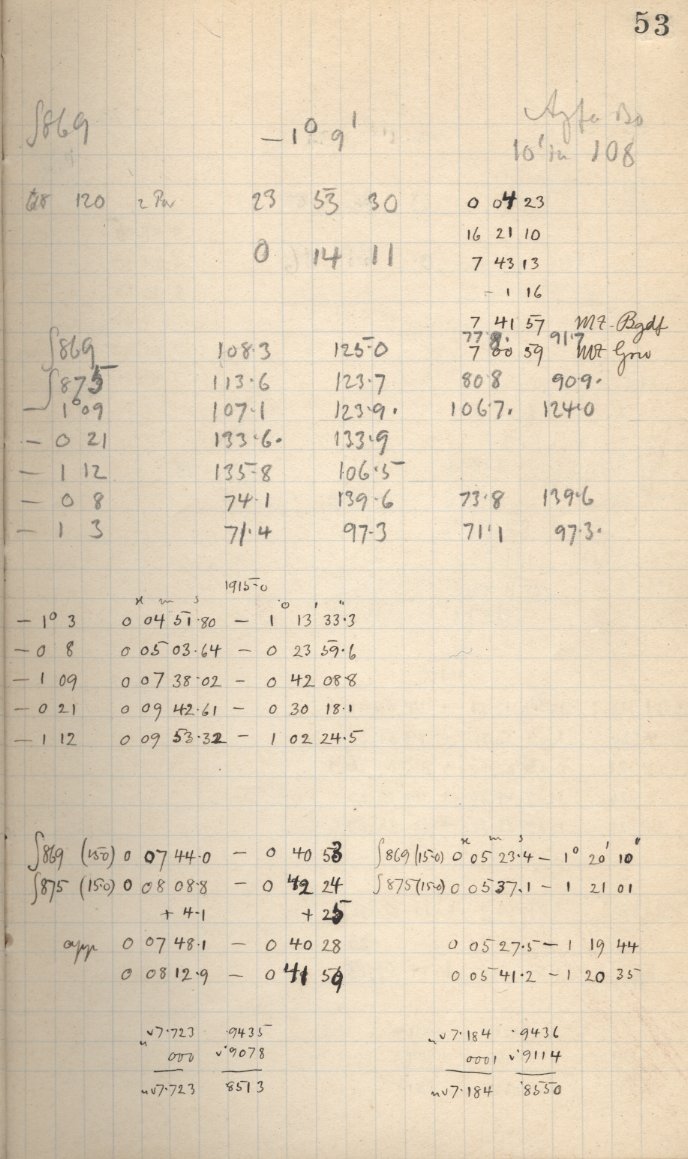 53
∫869 −1° 9′
10′ in 108
120 23 53 30 0 04 23
16 21 10
0 14 11 7 43 13
- 1 16
7 41 57 MT. Bgdf
77.8. 91.7
∫869 108.3 125.0 7 00 59 MT Grw
∫875 113.6 123.7 80.8 90.9.
− 1°09 107.1 123.9. 106.7. 124.0
− 0 21 133.6. 133.9
− 1 12 135.8 106.5
− 0 8 74.1 139.6 73.8 139.6
− 1 3 71.4 97.3 71.1 97.3.
1915.0
h m s ° ′ ″
− 1° 3 0 04 51.80 − 1 13 33.3
− 0 8 0 05 03.64 − 0 23 59.6
− 1 09 0 07 38.02 − 0 42 08.8
− 0 21 0 09 42.61 − 0 30 18.1
− 1 12 0 09 53.32 − 1 02 24.5
h m s
∫869 (15.0) 0 07 44.0 − 0 40 53 ∫869 (15.0) 0 05 23.4 − 1° 20′ 10″
∫875 (15.0) 0 08 08.8 − 0 42 24 ∫875 (15.0) 0 05 37.1 − 1 21 01
+ 4.1 + 25
app 0 07 48.1 − 0 40 28 0 05 27.5 − 1 19 44
0 08 12.9 − 0 41 59 0 05 41.2 − 1 20 35
nv7.723 .9435 nv7.184 .9436
000 v.9078 0001 v.9114
nv7.723 8513 nv7.184 .8550